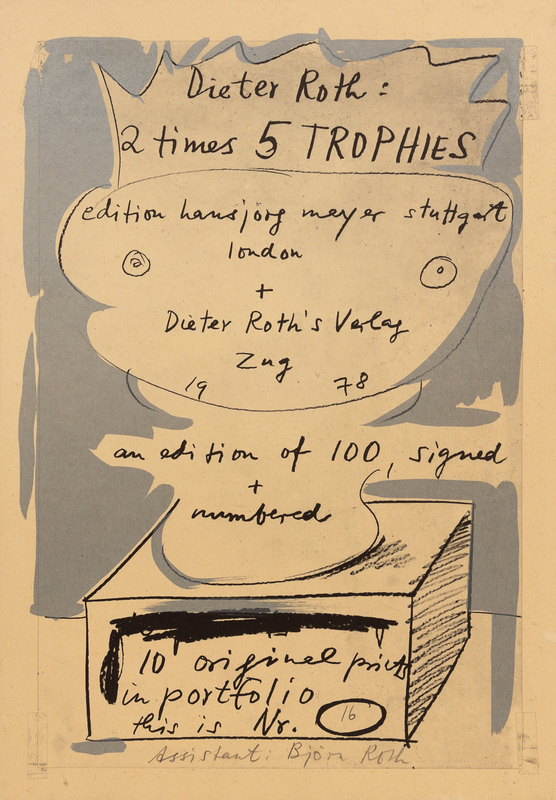 Dieter Roth:
2 times 5 TROPHIES
edition hansjörg meyer stuttgart
london
+
Dieter Roth's Verlag
Zug
19 78
an edition of 100, signed
+
numbered
10 original prints
in portfolio
this is Nr. 16
Assistant: Björn Roth